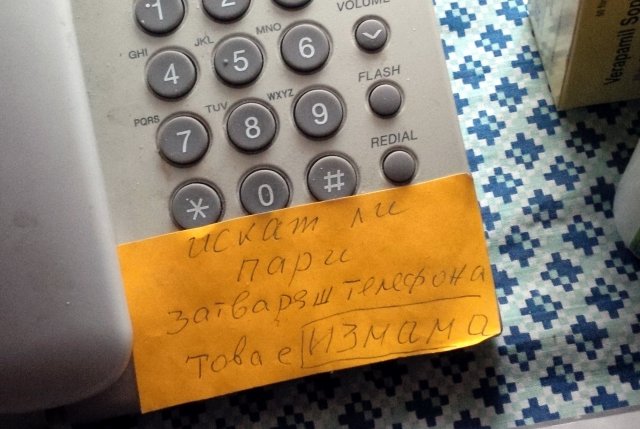 VOLUME
1 2
GHI JKL MNO
4 5 6
FLASH
PQRS TUV WXYZ
7 8 9
REDIAL
* 0 #
Verapamil Sop
искат ли
пари
затваряш телефона
това е ИЗМАМА